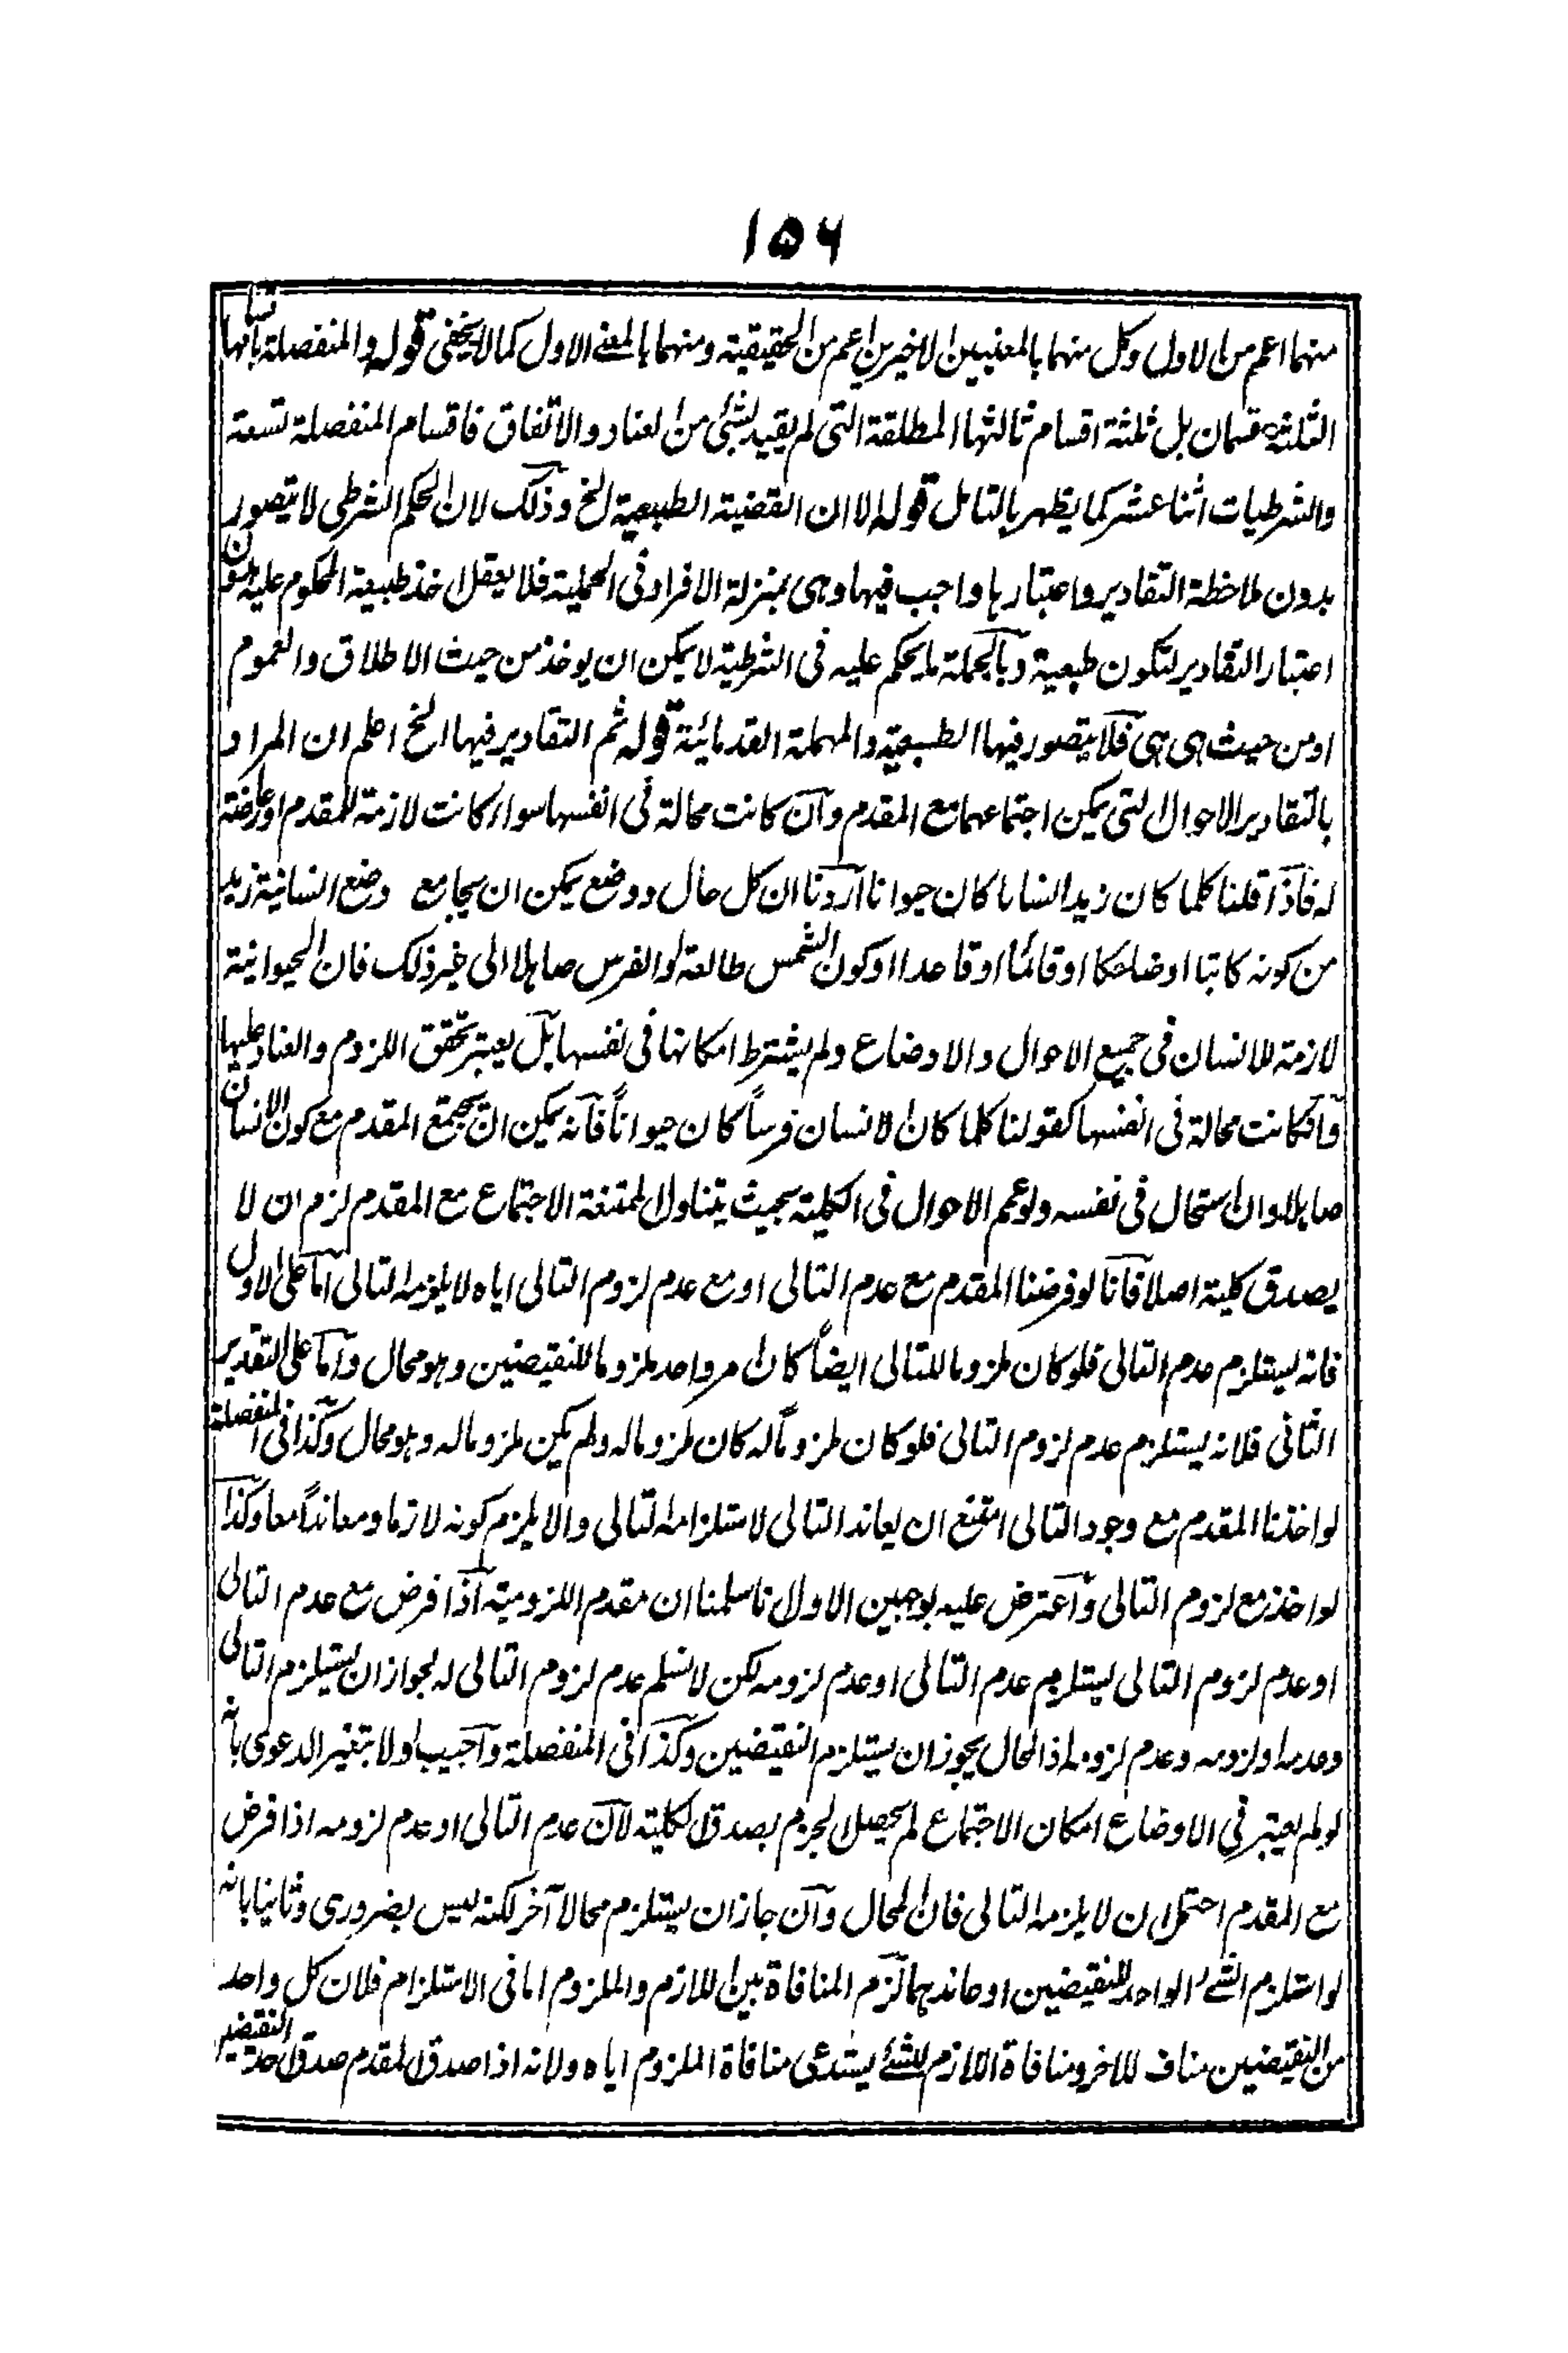 ١٥٦
منهما اعم من الاول وكل منهما بالمعنيين الاخيرين اعم من الحقيقية ومنهما بالمعنى الاول كما لا يخفى قوله والمنفصلة باقسامها
الثلثة قسمان بل ثلثة اقسام ثالثها المطلقة التى لم يقيد بشئ من العناد والاتفاق فاقسام المنفصلة تسعة
والشرطيات اثنا عشر كما يظهر بالتامل قوله الا ان القضية الطبيعية الخ وذلك لان الحكم الشرطى لا يتصور
بدون ملاحظة التقادير واعتبارها واجب فيها وهى بمنزلة الافراد فى الحملية فلا يعقل اخذ طبيعة المحكوم عليه بدون
اعتبار التقادير لتكون طبعية وبالجملة ما يحكم عليه فى الشرطية لا يمكن ان يوخذ من حيث الاطلاق والعموم
او من حيث هى هى فلا يتصور فيها الطبيعية والمهملة القدمائية قوله ثم التقادير فيها الخ اعلم ان المراد
بالتقادير الاحوال التى يمكن اجتماعها مع المقدم وان كانت محالة فى انفسها سواء كانت لازمة للمقدم او عارضة
له فاذا قلنا كلما كان زيد انسانا كان حيوانا اردنا ان كل حال ووضع يمكن ان يجامع وضع انسانية زيد
من كونه كاتبا او ضاحكا او قائما او قاعدا او كون الشمس طالعة او الفرس صاهلا الى غير ذلك فان الحيوانية
لازمة للانسان فى جميع الاحوال والاوضاع ولم يشترط امكانها فى نفسها بل يعتبر تحقق اللزوم والعناد عليها
وان كانت محالة فى انفسها كقولنا كلما كان الانسان فرساً كان حيواناً فانه يمكن ان يجتمع المقدم مع كون الانسان
صاهلا وان استحال فى نفسه ولو عمم الاحوال فى الكلية بحيث يتناول الممتنعة الاجتماع مع المقدم لزم ان لا
يصدق كلية اصلا فانا لو فرضنا المقدم مع عدم التالى او مع عدم لزوم التالى اياه لا يلزمه التالى اما على الاول
فانه يستلزم عدم التالى فلو كان ملزوما للتالى ايضاً كان امر واحد ملزوما للنقيضين وهو محال واما على التقدير
الثانى فلانه يستلزم عدم لزوم التالى فلو كان ملزوماً له كان ملزوما له ولم يكن ملزوما له وهو محال وكذا فى المنفصلة
لو اخذنا المقدم مع وجود التالى امتنع ان يعاند التالى لاستلزامه التالى والا يلزم كونه لازما ومعانداً معا وكذا
لو اخذ مع لزوم التالى واعترض عليه بوجهين الاول انا سلمنا ان مقدم اللزومية اذا فرض مع عدم التالى
او عدم لزوم التالى يستلزم عدم التالى او عدم لزومه لكن لا نسلم عدم لزوم التالى له لجواز ان يستلزم التالى
وعدمه او لزومه وعدم لزومه اذ المحال يجوز ان يستلزم النقيضين وكذا فى المنفصلة واجيب اولا بتغير الدعوى بانه
لو لم يعتبر فى الاوضاع امكان الاجتماع لم يحصل الجزم بصدق الكلية لان عدم التالى او عدم لزومه اذا فرض
مع المقدم احتمل ان لا يلزمه التالى فان المحال وان جاز ان يستلزم محالا آخر لكنه ليس بضرورى وثانيا بانه
لو استلزم الشئ الواحد للنقيضين او عاندهما لزم المنافاة بين اللازم والملزوم اما فى الاستلزام فلان كل واحد
من النقيضين مناف للاخر ومنافاة اللازم للشئ يستدعى منافاة الملزوم اياه ولانه اذا صدق المقدم صدق احد النقيضين